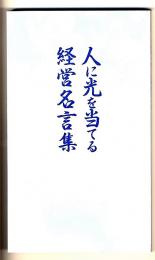 人に光を当てる
経営名言集